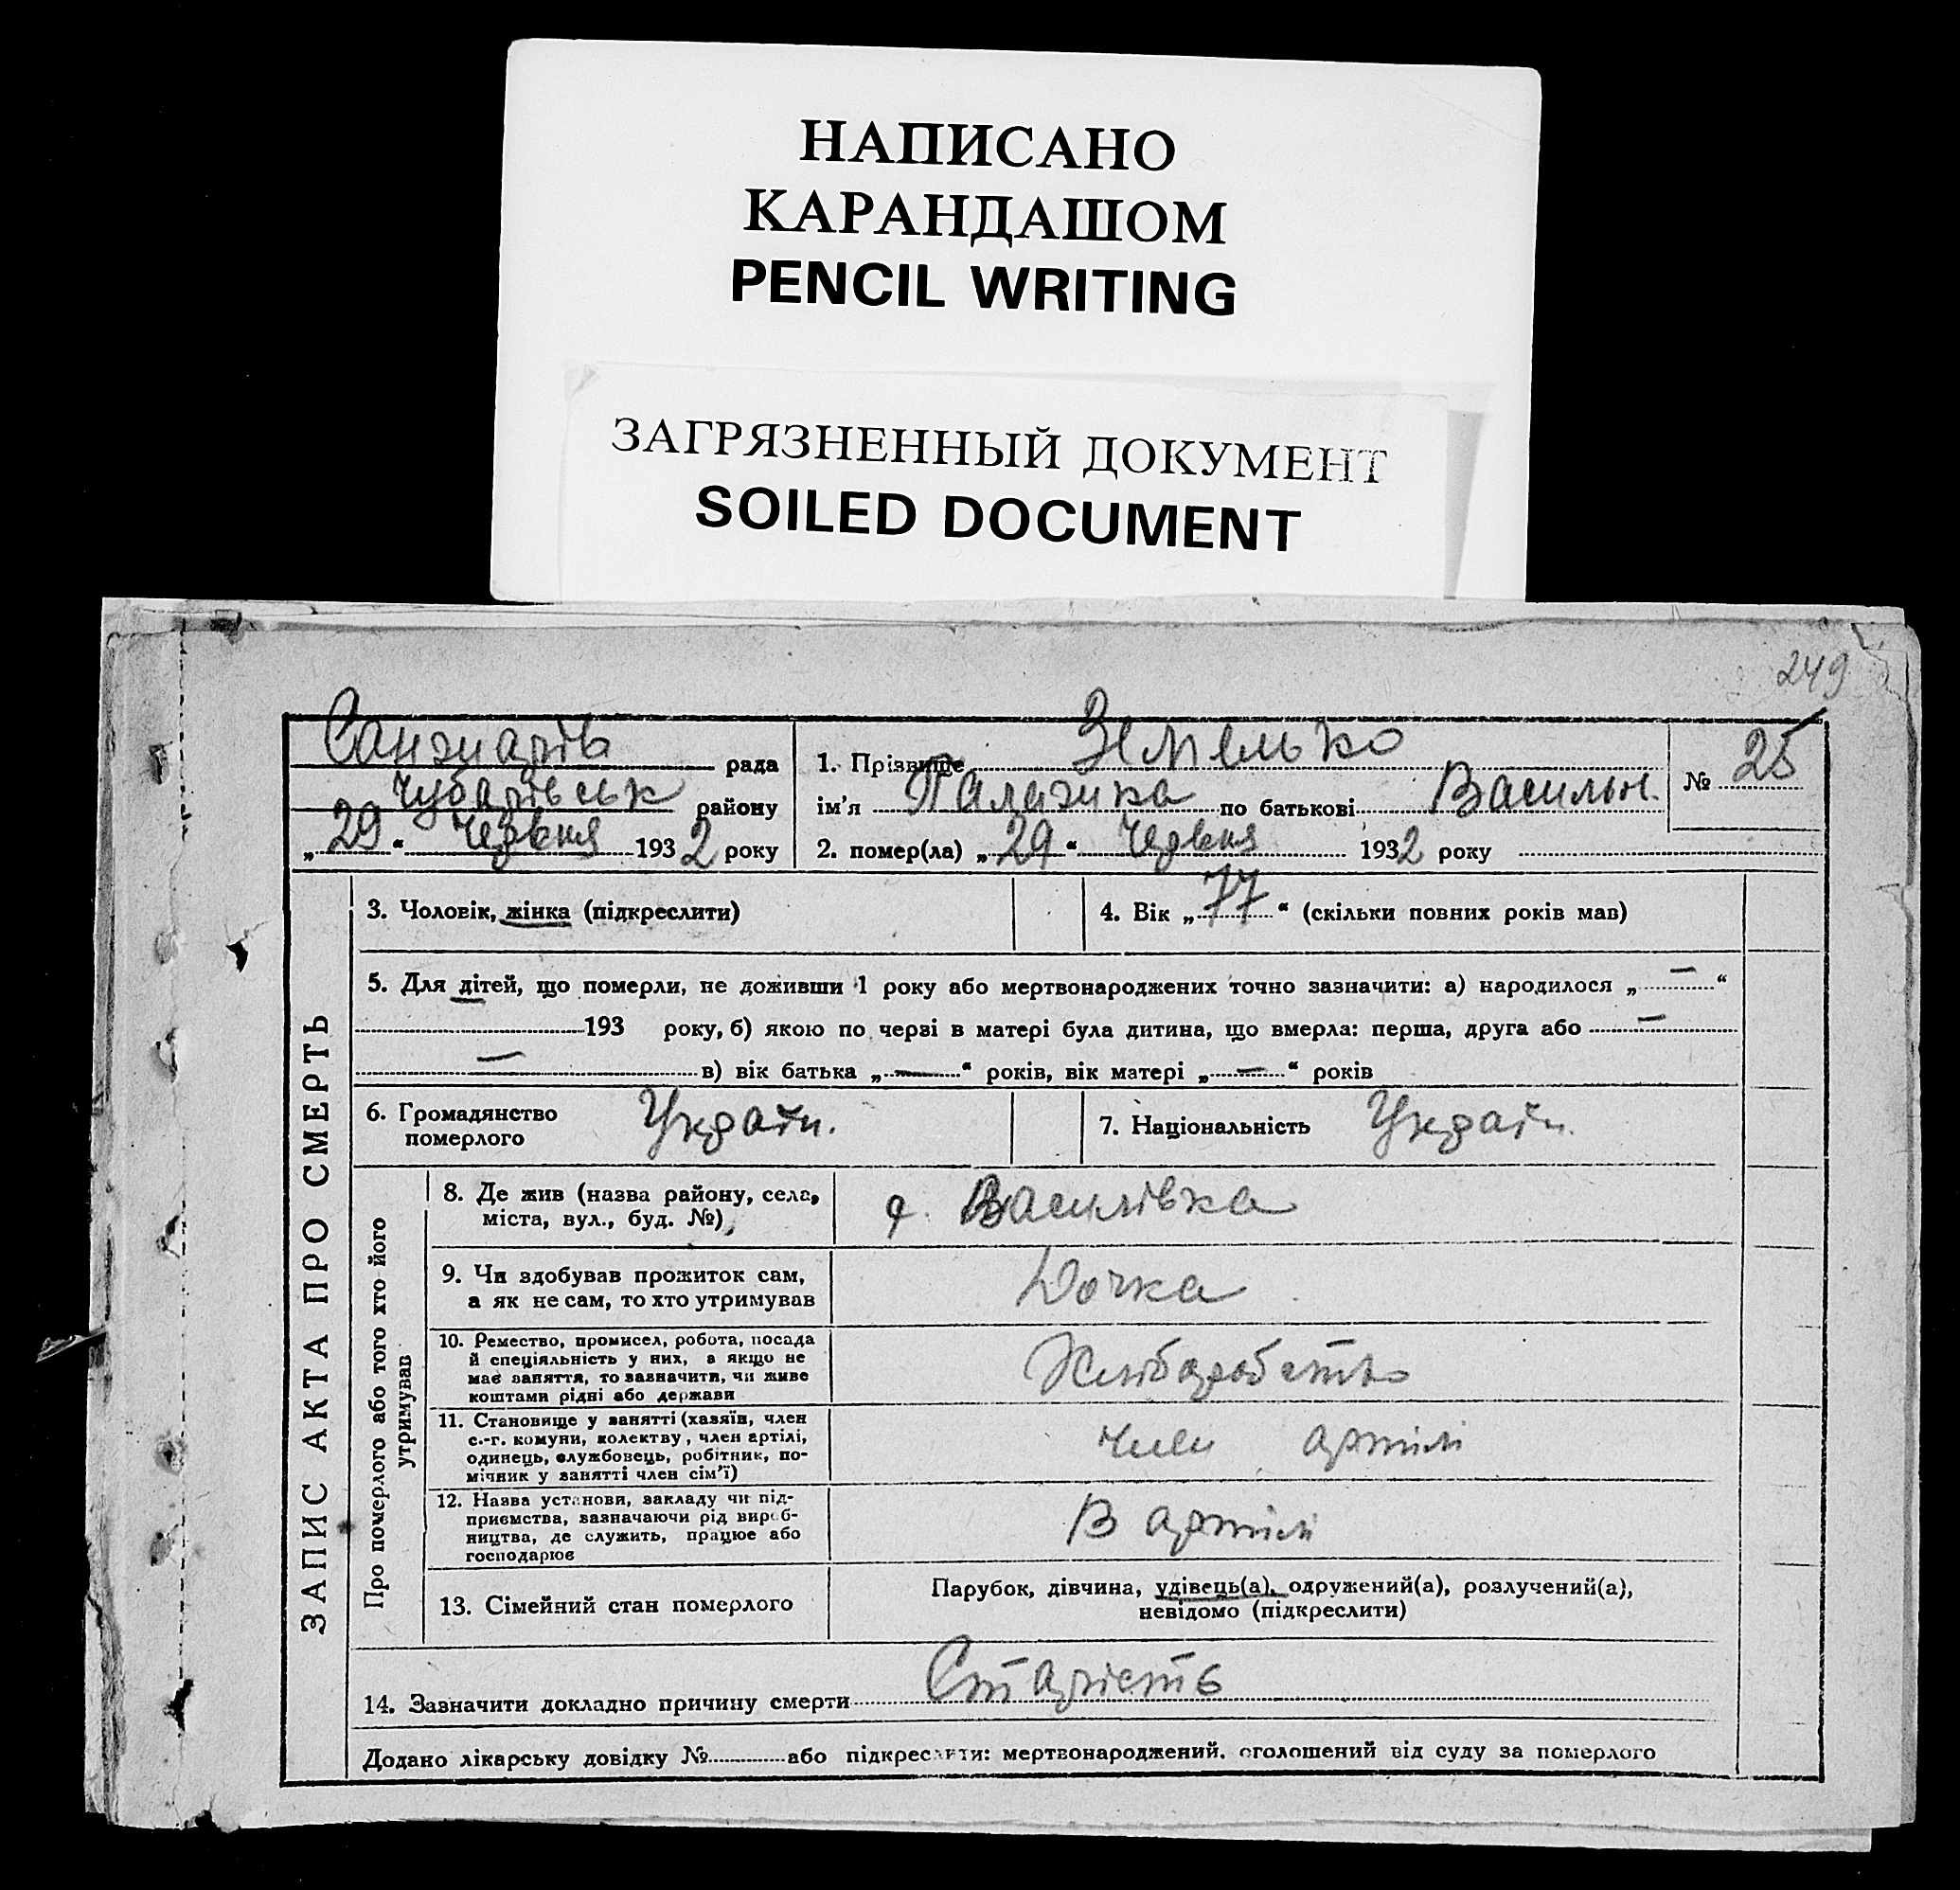 НАПИСАНО
КАРАНДАШОМ
PENCIL WRITING
ЗАГРЯЗНЕННЫЙ ДОКУМЕНТ
SOILED DOCUMENT
249
рада
Чубарівськ району
„29“ Червня 1932 року
1. Прізвище Земелько
ім'я по батькові Васильн.
2. помер(ла) „29“ Червня 1932 року
№ 25
ЗАПИС АКТА ПРО СМЕРТЬ
3. Чоловік, жінка (підкреслити)
4. Вік „77“ (скільки повних років мав)
5. Для дітей, що померли, не доживши 1 року або мертвонароджених точно зазначити: а) народилося „—“
193 року, б) якою по черзі в матері була дитина, що вмерла: перша, друга або —
— в) вік батька „—“ років, вік матері „—“ років
6. Громадянство
померлого
Україн.
7. Національність Україн.
Про померлого або того хто його
утримував
8. Де жив (назва району, села,
міста, вул., буд. №)
Василівка
9. Чи здобував прожиток сам,
а як не сам, то хто утримував
Дочка
10. Ремество, промисел, робота, посада
й спеціяльність у них, а якщо не
має заняття, то зазначити, чи живе
коштами рідні або держави
Хліборобство
11. Становище у занятті (хазяїн, член
с.-г. комуни, колективу, член артілі,
одинець, службовець, робітник, по-
мічник у занятті член сім'ї)
член артілі
12. Назва установи, закладу чи під-
приємства, зазначаючи рід вироб-
ництва, де служить, працює або
господарює
В артілі
13. Сімейний стан померлого
Парубок, дівчина, удівець(а), одружений(а), розлучений(а),
невідомо (підкреслити)
14. Зазначити докладно причину смерти Старість
Додано лікарську довідку № або підкреслити: мертвонароджений, оголошений від суду за померлого